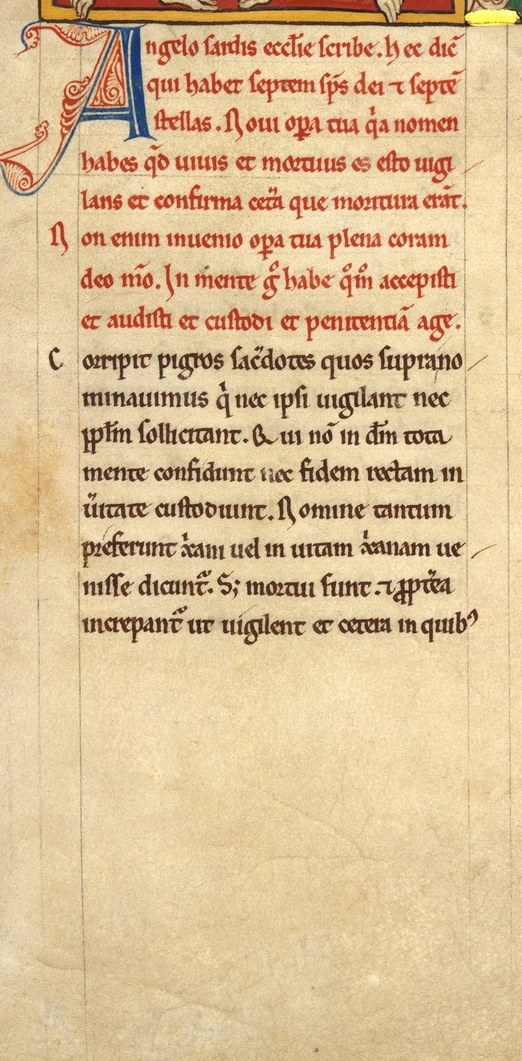 Angelo sardis eccl̄ie scribe. Hec dic̄
qui habet septem sp̄s dei ⁊ septē
stellas. Noui oꝑa tua q̓a nomen
habes qd̄ uiuis et mortuus es esto uigi
lans et confirma cet̄a que moritura erāt.
Non enim inuenio oꝑa tua plena coram
deo m̄o. In mente gͦ habe qͦm̄ accepisti
et audisti et custodi et penitentiā age.
Corripit pigros sac̄dotes quos supra no
minauimus q̓ nec ipsi uigilant nec
pp̄lm sollicitant. Qui nō in dm̄ tota
mente confidunt nec fidem rectam in
ūitate custodiunt. Nomine tantum
preferunt xp̄ani uel in uitam xp̄anam ue
nisse dicunt᷑. S; mortui sunt. ⁊ ꝓpt̄ea
increpant᷑ ut uigilent et cetera in quibꝰ